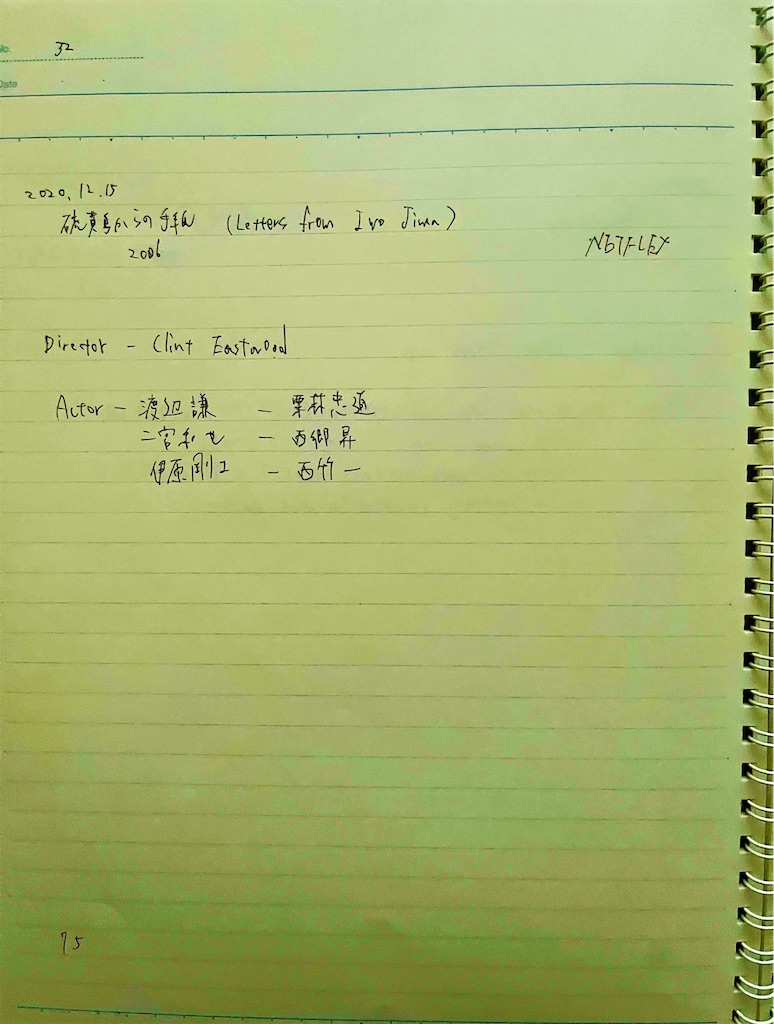 No. 32
Date
2020.12.15
硫黄島からの手紙 (Letters from Iwo Jima)
2006
NETFLEX
Director - Clint Eastwood
Actor - 渡辺謙 - 栗林忠道
二宮和也 - 西郷昇
伊原剛志 - 西竹一
75